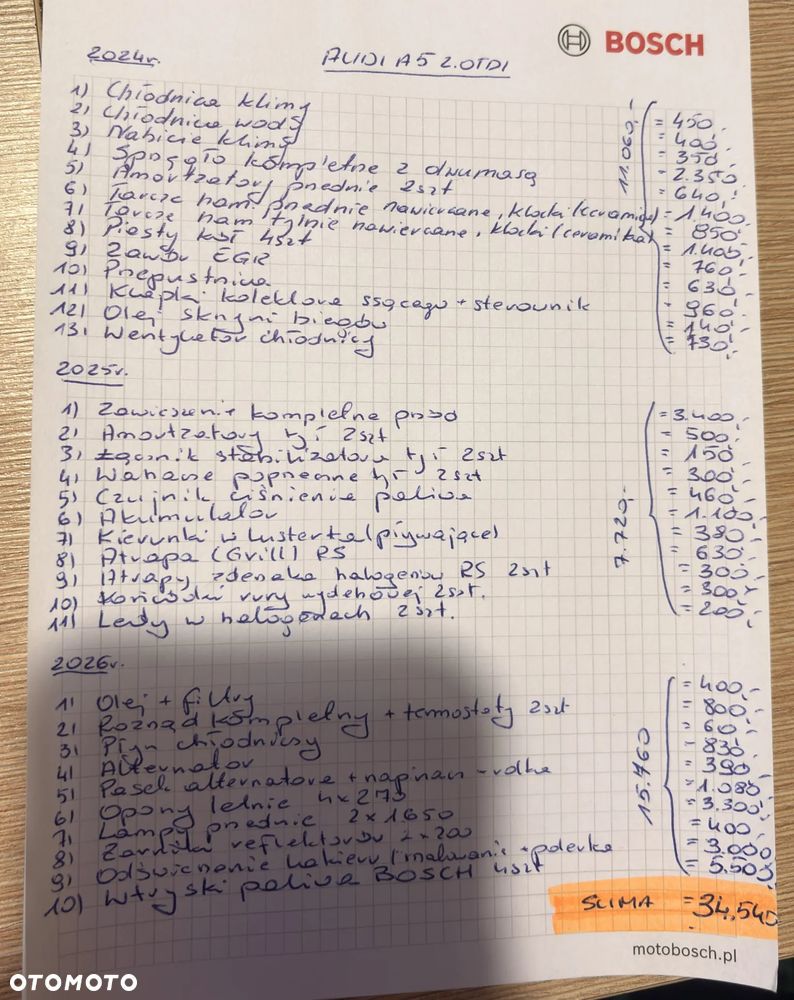 BOSCH
2024r.
AUDI A5 2.0TDI
1) Chłodnica klimy = 450,-
2) Chłodnica wody = 400,-
3) Nabicie klimy = 350,-
4) Sprzęgło kompletne z dwumasą = 2.350,-
5) Amortzatory przednie 2szt = 640,-
6) Tarcze ham. przednie nawiercane, klocki (ceramika) = 1.400,-
7) Tarcze ham tylnie nawiercane, klocki (ceramika) = 850,-
8) Piasty kół 4szt = 1.400,-
9) Zawór EGR = 760,-
10) Przepustnica = 630,-
11) Klapki kolektora ssącego + sterownik = 960,-
12) Olej skrzyni biegów = 140,-
13) Wentylator chłodnicy = 730,-
11.060,-
2025r.
1) Zawieszenie kompletne przód = 3.400,-
2) Amortzatory tył 2szt = 500,-
3) Łącznik stabilizatora tył 2szt = 150,-
4) Wahacze poprzeczne tył 2szt = 300,-
5) Czujnik ciśnienia paliwa = 460,-
6) Akumulator = 1.100,-
7) Kierunki w lusterka (pływające) = 380,-
8) Atrapa (Grill) RS = 630,-
9) Atrapy zderzaka halogenów RS 2szt = 300,-
10) Końcówki rury wydechowej 2szt. = 300,-
11) Ledy w halogenach 2szt. = 200,-
7.720,-
2026r.
1) Olej + filtry = 400,-
2) Rozrząd kompletny + termostaty 2szt = 800,-
3) Płyn chłodniczy = 60,-
4) Alternator = 830,-
5) Pasek alternatora + napinacz - rolka = 390,-
6) Opony letnie 4x270 = 1.080,-
7) Lampy przednie 2x1650 = 3.300,-
8) Żarniki reflektorów 2x200 = 400,-
9) Odświeżanie lakieru (malowanie + polerka = 3.000,-
10) Wtryski paliwa BOSCH 4szt = 5.500,-
15.760
SUMA = 34.540
motobosch.pl
OTOMOTO